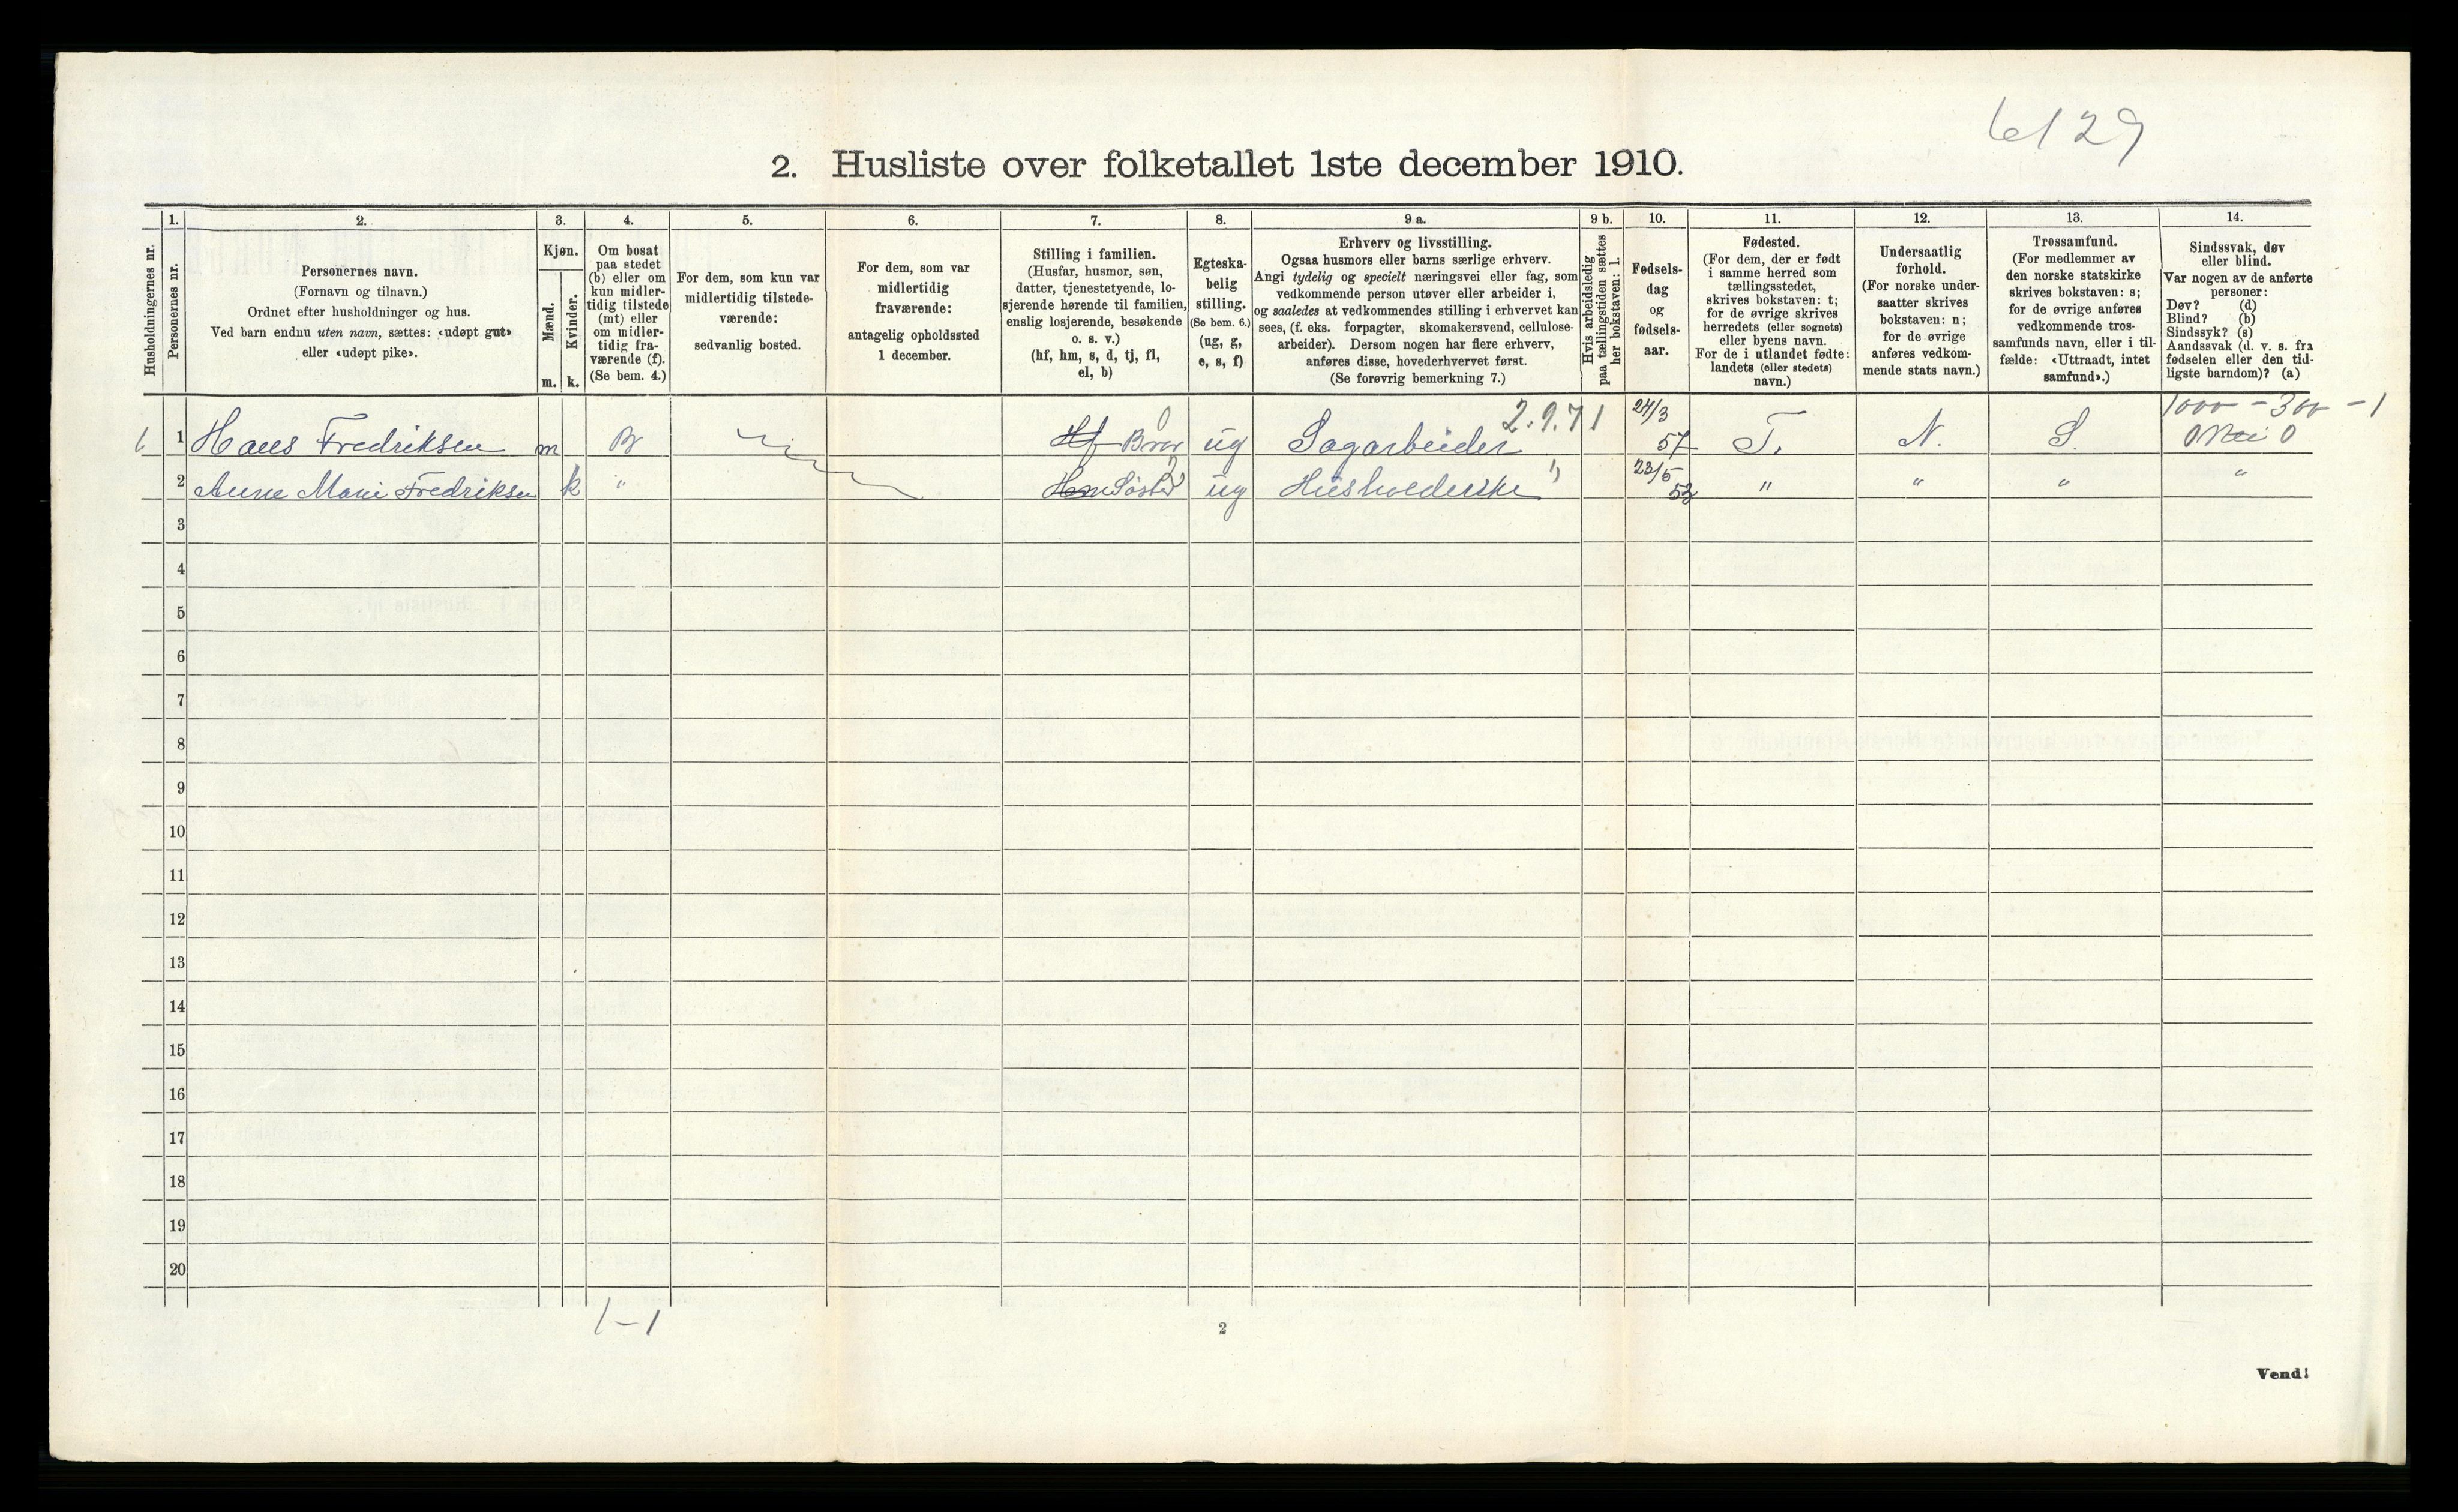 6129
2. Husliste over folketallet 1ste december 1910.
Husholdningernes nr.
1.
Personernes nr.
2.
Personernes navn.
(Fornavn og tilnavn.)
Ordnet efter husholdninger og hus.
Ved barn endnu uten navn, sættes: «udøpt gut»
eller «udøpt pike».
3.
Kjøn.
Mænd.
Kvinder.
m.
k.
4.
Om bosat
paa stedet
(b) eller om
kun midler-
tidig tilstede
(mt) eller
om midler-
tidig fra-
værende (f).
(Se bem. 4.)
5.
For dem, som kun var
midlertidig tilstede-
værende:
sedvanlig bosted.
6.
For dem, som var
midlertidig
fraværende:
antagelig opholdssted
1 december.
7.
Stilling i familien.
(Husfar, husmor, søn,
datter, tjenestetyende, lo-
sjerende hørende til familien,
enslig losjerende, besøkende
o. s. v.)
(hf, hm, s, d, tj, fl,
el, b)
8.
Egteska-
belig
stilling.
(Se bem. 6.)
(ug, g,
e, s, f)
9 a.
Erhverv og livsstilling.
Ogsaa husmors eller barns særlige erhverv.
Angi tydelig og specielt næringsvei eller fag, som
vedkommende person utøver eller arbeider i,
og saaledes at vedkommendes stilling i erhvervet kan
sees, (f. eks. forpagter, skomakersvend, cellulose-
arbeider). Dersom nogen har flere erhverv,
anføres disse, hovederhvervet først.
(Se forøvrig bemerkning 7.)
9 b.
Hvis arbeidsledig
paa tællingstiden sættes
her bokstaven: l.
10.
Fødsels-
dag
og
fødsels-
aar.
11.
Fødested.
(For dem, der er født
i samme herred som
tællingsstedet,
skrives bokstaven: t;
for de øvrige skrives
herredets (eller sognets)
eller byens navn.
For de i utlandet fødte:
landets (eller stedets)
navn.)
12.
Undersaatlig
forhold.
(For norske under-
saatter skrives
bokstaven: n;
for de øvrige
anføres vedkom-
mende stats navn.)
13.
Trossamfund.
(For medlemmer av
den norske statskirke
skrives bokstaven: s;
for de øvrige anføres
vedkommende tros-
samfunds navn, eller i til-
fælde: «Uttraadt, intet
samfund».)
14.
Sindssvak, døv
eller blind.
Var nogen av de anførte
personer:
Døv? (d)
Blind? (b)
Sindssyk? (s)
Aandssvak (d. v. s. fra
fødselen eller den tid-
ligste barndom)? (a)
2.9.71 1000 - 300 - 1
1 Hans Fredriksen m B Hf Bror ug Sagarbeider 24/3 57 T. N. S. 0 Nei 0
2 Anne Marie Fredriksen k " Hm Søster ug Husholderske " 23/5 53 " " " "
3
4
5
6
7
8
9
10
11
12
13
14
15
16
17
18
19
20
1-1
2
Vend!